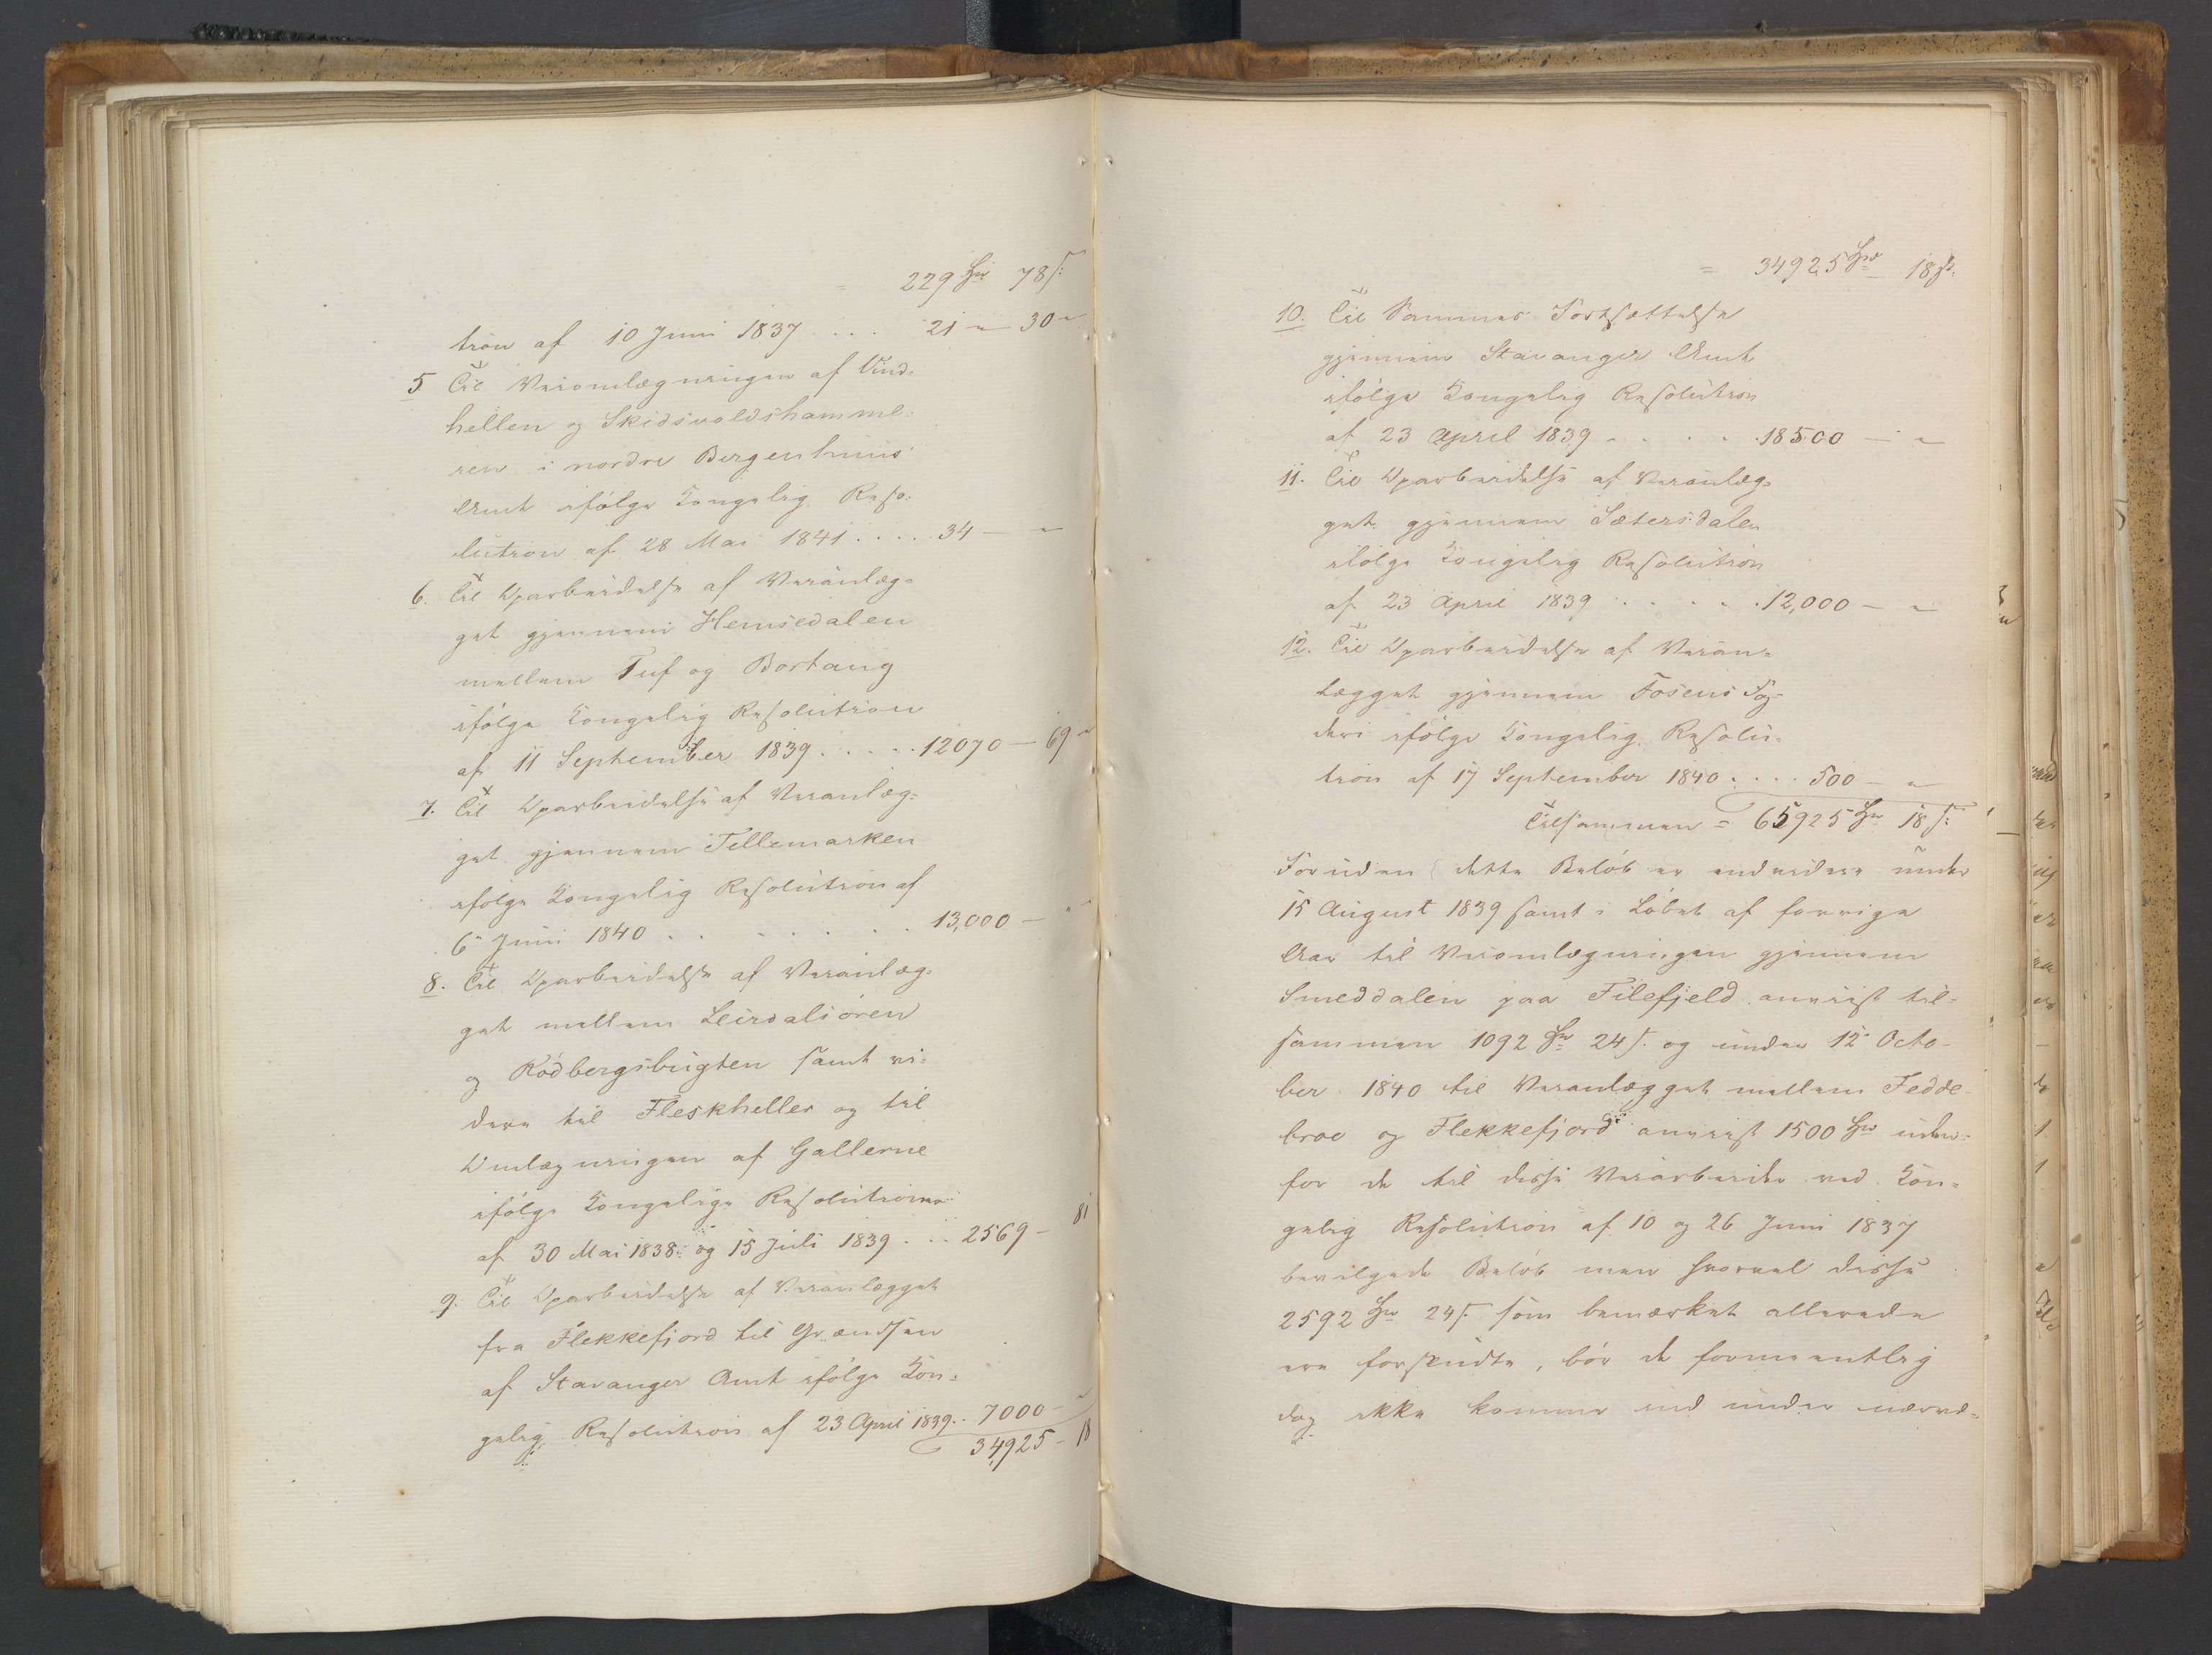 = 229 Spd 78 s:
tion af 10 Juni 1837 .... 21 " 30 "
5 Til Veiomlægningen af Vind-
hellen og Skidsvoldshamme-
ren i nordre Bergenhuus
Amt ifölge Kongelig Reso-
lution af 28 Mai 1841 ..... 34 — "
6. Til Oparbeidelse af Veianlæg-
get gjennem Hemsedalen
mellem Tuf og Bortang
ifölge Kongelig Resolution
af 11 September 1839 ..... 12070 — 69 "
7. Til Oparbeidelse af Veianlæg-
get gjennem Tellemarken
ifölge Kongelig Resolution af
6 Juni 1840 ........ 13,000 — "
8. Til Oparbeidelse af Veianlæg-
get mellem Leirdalsören
og Rödbergsbugten samt vi-
dere til Fleskheller og til
Omlægningen af Gallerne
ifölge Kongelige Resolutioner
af 30 Mai 1838 og 15 Juli 1839 ... 2569 — 81
9. Til Oparbeidelse af Veianlægget
fra Flekkefjord til Grændsen
af Stavanger Amt ifölge Kon-
gelig Resolution af 23 April 1839 .. 7000 — "
34,925 — 18
= 34925 Spd 18 s.
10. Til Sammes Fortsættelse
gjennem Stavanger Amt
ifölge Kongelig Resolution
af 23 April 1839 ..... 18500 — "
11. Til Oparbeidelse af Veianlæg-
get gjennem Sætersdalen
ifölge Kongelig Resolution
af 23 April 1839 ..... 12,000 — "
12. Til Oparbeidelse af Veian-
lægget gjennem Fosens Fog-
deri ifölge Kongelig Resolu-
tion af 17 September 1840 .... 500 — "
Tilsammen = 65925 Spd 18 s:
Foruden dette Belöb er endvidere under
15 August 1839 samt i Löbet af forrige
Aar til Veiomlægningen gjennem
Smeddalen paa Filefjeld anviist til-
sammen 1092 Spd 24 s. og under 12 Octo-
ber 1840 til Veianlægget mellem Fedde
broe og Flekkefjord anviist 1500 Spd uden-
for de til disse Veiarbeider ved Kon-
gelig Resolution af 10 og 26 Juni 1837
bevilgede Belöb men hvorvel disse
2592 Spd 24 s. som bemærket allerede
ere forskudte, bör de formeentlig
dog ikke komme ind under nærvæ-